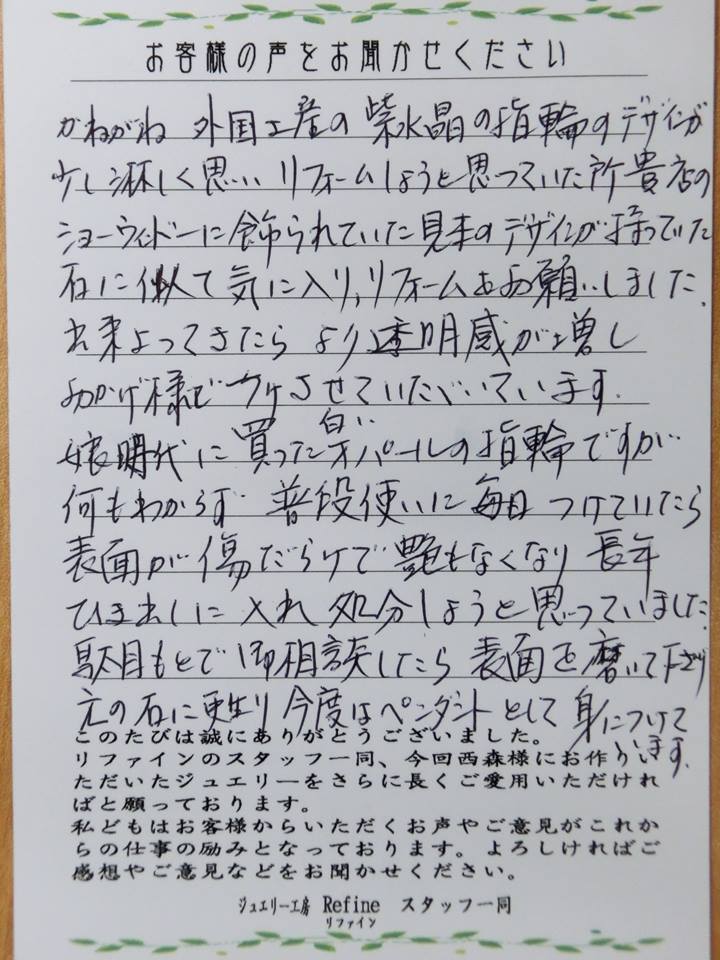 お客様の声をお聞かせください
かねがね 外国土産の紫水晶の指輪のデザインが
少し淋しく思い リフォームしようと思っていた所貴店の
ショーウィンドーに飾られていた見本のデザインが持っていた
石に似て気に入り、リフォームをお願いしました。
出来上ってきたら より透明感が増し
おかげ様で 今させていただいています。
娘時代に買った白いオパールの指輪ですが
何もわからず 普段使いに毎日つけていたら
表面が傷だらけで艶もなくなり 長年
ひき出しに入れ 処分しようと思っていました。
駄目もとで御相談したら 表面を磨いて下さり
元の石に更生り 今度はペンダントとして身につけて
います。
このたびは誠にありがとうございました。
リファインのスタッフ一同、今回西森様にお作りい
ただいたジュエリーをさらに長くご愛用いただけれ
ばと願っております。
私どもはお客様からいただくお声やご意見がこれか
らの仕事の励みとなっております。よろしければご
感想やご意見などをお聞かせください。
ジュエリー工房 Refine スタッフ一同
リファイン